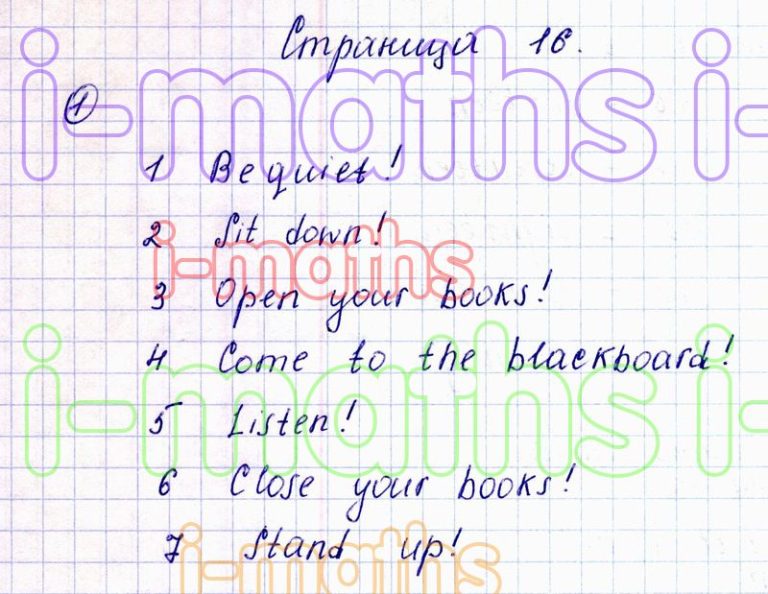 Страница 16.
1
1 Be quiet!
2 Sit down!
3 Open your books!
4 Come to the blackboard!
5 Listen!
6 Close your books!
7 Stand up!
i-maths i-maths
i-maths
i-maths i-maths
i-maths